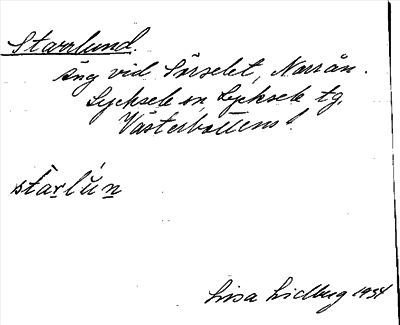 Starrlund.
Äng vid Pårselet, Norrån.
Lycksele sn, Lycksele tg,
Västerbottens l.
stàrlún
Lisa Lidberg 1934